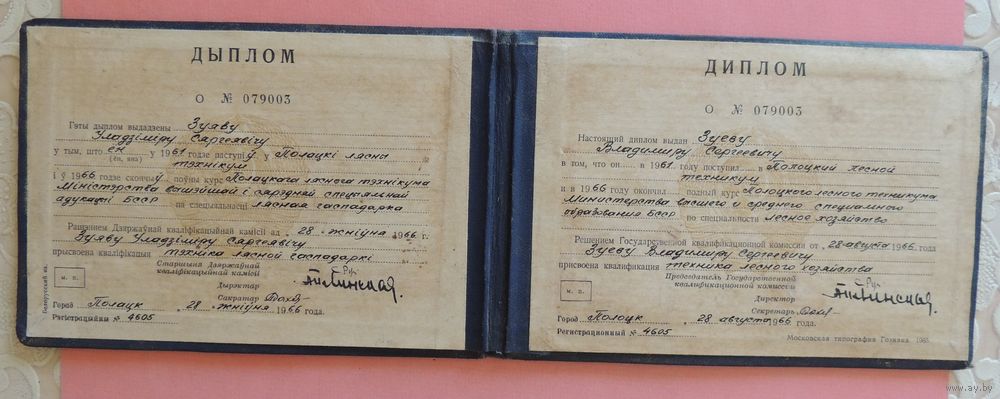 ДЫПЛОМ
О № 079003
Гэты дыплом выдадзены Зуяву
Уладзіміру Сяргеявічу
у тым, што ён у 1961 годзе паступіў у Полацкі лясны
(ён, яна)
тэхнікум
і ў 1966 годзе скончыў поўны курс Полацкага ляснога тэхнікума
Міністэрства вышэйшай і сярэдняй спецыяльнай
адукацыі БССР па спецыяльнасці лясная гаспадарка
Рашэннем Дзяржаўнай кваліфікацыйнай камісіі ад 28 жніўня 1966 г.
Зуяву Уладзіміру Сяргеявічу
прысвоена кваліфікацыя тэхніка лясной гаспадаркі
Старшыня Дзяржаўнай
кваліфікацыйнай камісіі
Дырэктар
м. п.
Сакратар
Горад Полацк 28 жніўня 1966 года.
Рэгістрацыйны № 4605
Беларускай яз.
ДИПЛОМ
О № 079003
Настоящий диплом выдан Зуеву
Владимиру Сергеевичу
в том, что он в 1961 году поступил в Полоцкий лесной
техникум
и в 1966 году окончил полный курс Полоцкого лесного техникума
Министерства высшего и среднего специального
образования БССР по специальности лесное хозяйство
Решением Государственной квалификационной комиссии от 28 августа 1966 года
Зуеву Владимиру Сергеевичу
присвоена квалификация техника лесного хозяйства
Председатель Государственной
квалификационной комиссии
Директор
м. п.
Секретарь
Город Полоцк 28 августа 1966 года.
Регистрационный № 4605
Московская типография Гознака. 1965.
www.ay.by